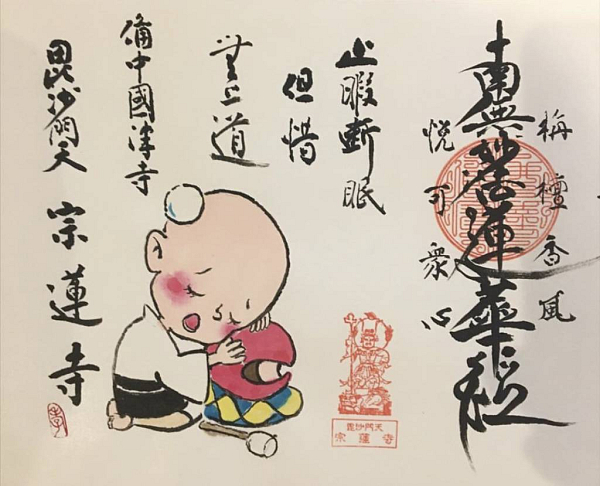 栴檀香風
南無妙法蓮華経
悦可衆心
止暇断眠
但惜
無上道
備中國津寺
毘沙門天 宗蓮寺
毘沙門天
宗蓮寺